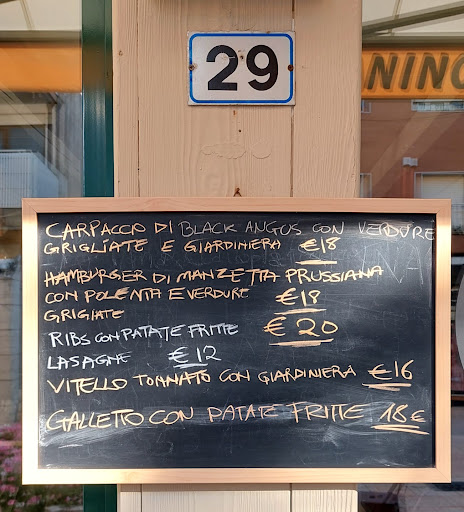 29
NINO
CARPACCIO DI BLACK ANGUS CON VERDURE
GRIGLIATE E GIARDINIERA €18
HAMBURGER DI MANZETTA PRUSSIANA
CON POLENTA E VERDURE €18
GRIGIATE
RIBS CON PATATE FRITTE €20
LASAGNE €12
VITELLO TONNATO CON GIARDINIERA €16
GALLETTO CON PATATE FRITTE 18€